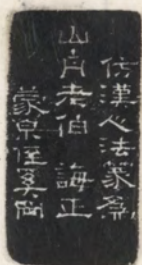 仿漢人法篆為
山舟老伯 誨正
蒙泉侄奚岡